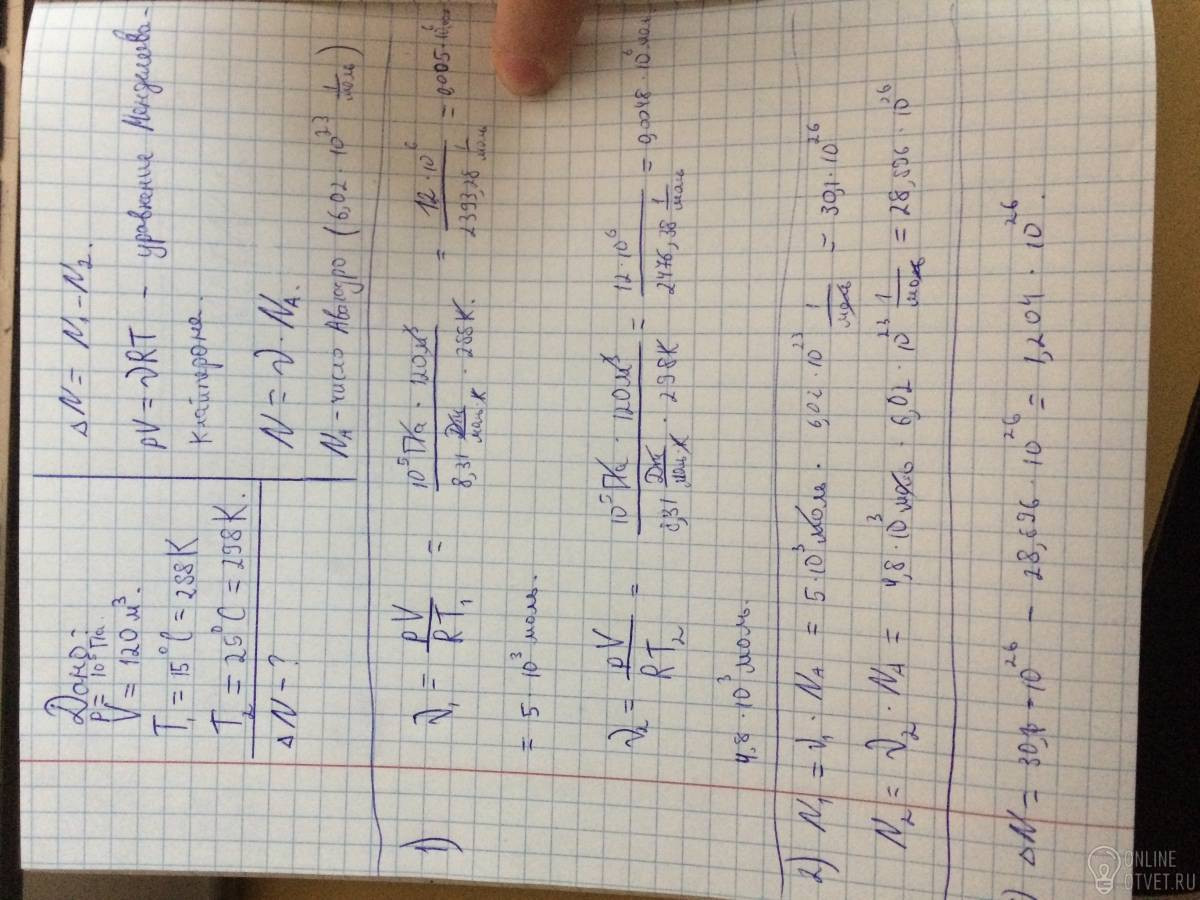 Дано:
p = 10⁵ Па.
V = 120 м³.
T₁ = 15°C = 288К
T₂ = 25°C = 298К.
ΔN - ?
ΔN = N₁ - N₂.
pV = νRT - уравнение Менделеева-
Клайперона.
N = ν · Nₐ.
Nₐ - число Авогадро (6,02 · 10²³ 1/моль)
1) ν₁ = pV/RT₁ = 10⁵Па · 120м³ / 8,31 Дж/моль·К · 288К. = 12 · 10⁶ / 2393,28 1/моль = 0,005 · 10⁶
= 5 · 10³ моль.
ν₂ = pV/RT₂ = 10⁵ Па · 120м³ / 8,31 Дж/моль·К · 298К = 12 · 10⁶ / 2476,38 1/моль = 0,0048 · 10⁶ моль
4,8 · 10³ моль.
2) N₁ = ν₁ · Nₐ = 5 · 10³ моль · 6,02 · 10²³ 1/моль = 30,1 · 10²⁶
N₂ = ν₂ · Nₐ = 4,8 · 10³ моль · 6,02 · 10²³ 1/моль = 28,896 · 10²⁶
) ΔN = 30,1 · 10²⁶ - 28,896 · 10²⁶ = 1,204 · 10²⁶.
ONLINE
OTVET.RU